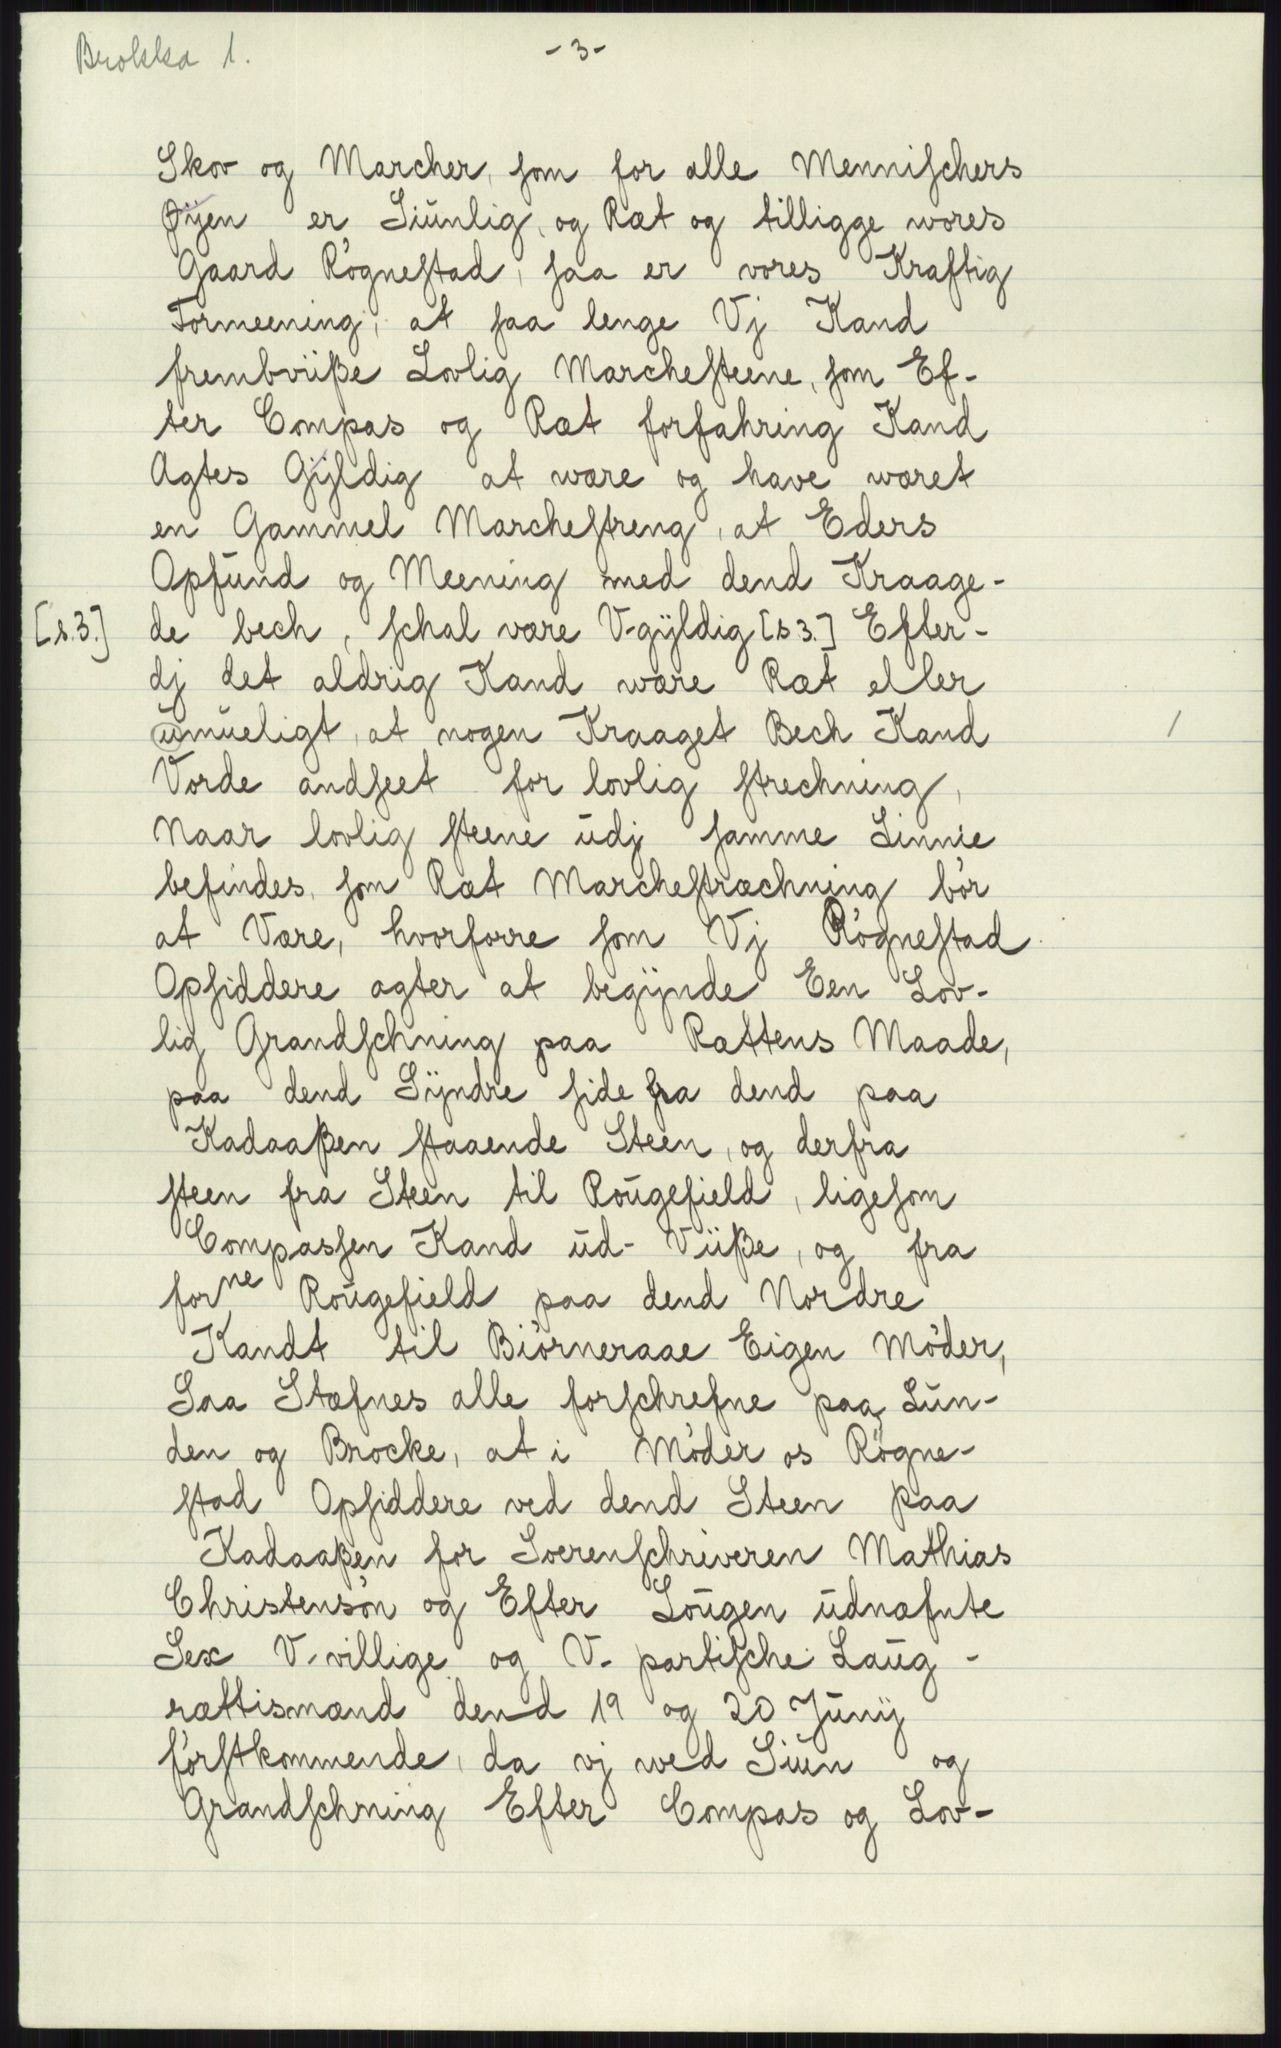 Brokka 1.
- 3 -
Skov og Marcher, som for alle Mennischers
Øÿen er Siunlig, og Ræt og tilligge wores
Gaard Rògnestad, saa er vores Kraftig
Formeening, at saa lenge Vj Kand
frembviiße Lovlig Marchesteene, som Ef-
ter Compas og Ræt forfahring Kand
Agtes Gÿldig at wære og have wæret
en Gammel Marchestreng, at Eders
Opfund og Meening med dend Kraage-
[s.3.] de bech, schal være V-gÿldig [s 3.] Efter-
dj det aldrig Kand wære Ræt eller
umueligt, at nogen Kraaget Bech Kand
Vorde andseet for lovlig strechning,
Naar lovlig steene udj samme Linnie
befindes, som Ræt Marchestræchning bòr
at Være, hvorforre som Vj Rògnestad
Opsiddere agter at begÿnde Een Lov-
lig Grandschning paa Rættens Maade,
paa dend Sÿndre side fra dend paa
Kadaaßen staaende Steen, og derfra
steen fra Steen til Rougefield, ligesom
Compassen Kand ud- Viiße, og fra
forne Rougefield paa dend Nordre
Kandt til Biòrneraae Eigen Mòder,
Saa Stæfnes alle forschrefne paa Lun-
den og Brocke, at i Mòder os Rògne-
stad Opsiddere ved dend Steen paa
Kadaaßen for Soerenschriveren Mathias
Christensòn og Efter Lougen udnæfnte
Sex V-villige og V- partische Laug-
rættismænd dend 19 og 20 Junij
fòrstkommende, da vj wed Siun og
Grandschning Efter Compas og Lov-